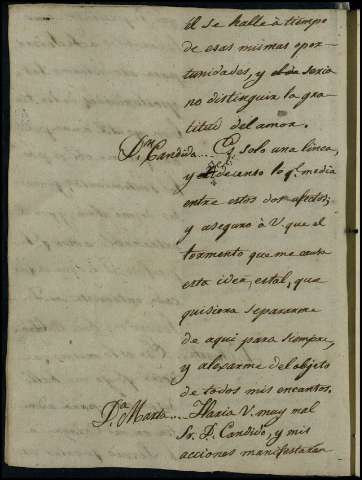 él se halle à tiempo
de esas mismas opor-
tunidades, y seria
no distinguir la gra-
titud del amor.
Dn. Candido... Es solo una linea,
y lo q.e media
entre estos dos afectos;
y aseguro à V. que el
tormento que me causa
esta idea, es tal, que
quisiera separarme
de aqui para siempre,
y alexarme del objeto
de todos mis encantos.
D.a Marta... Haria V. muy mal
Sr. D. Candido, y mis
acciones manifestaran